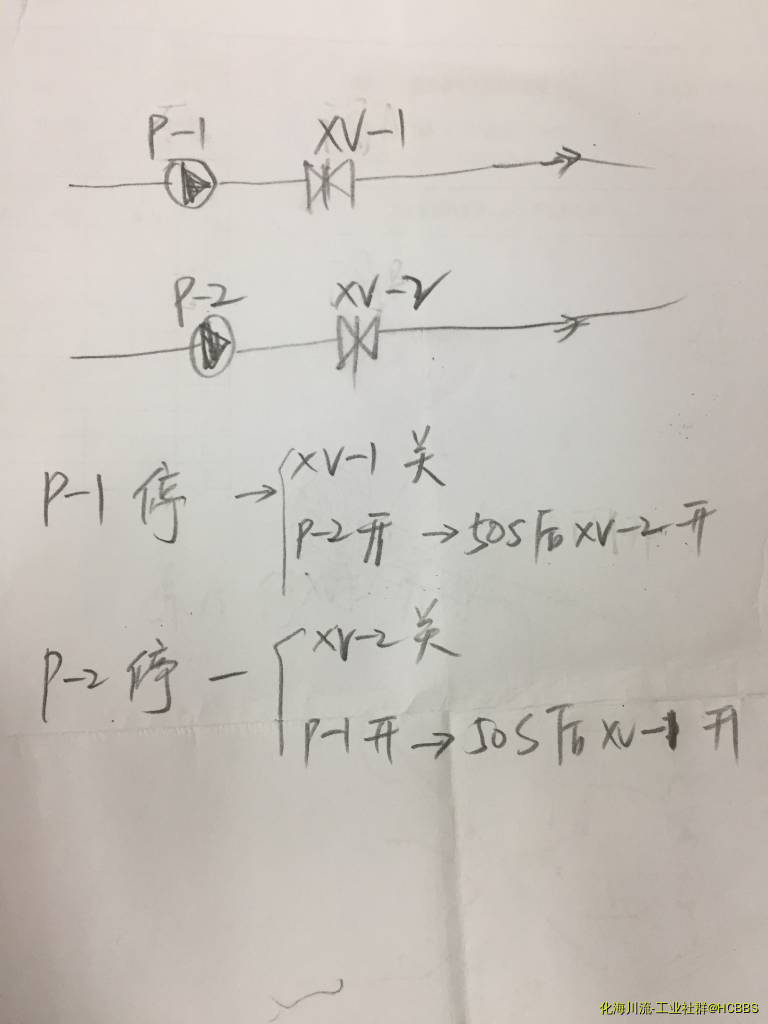 P-1 XV-1
P-2 XV-2
P-1 停 → XV-1 关
P-2 开 → 50S后 XV-2 开
P-2 停 - XV-2 关
P-1 开 → 50S后 XV-1 开
化海川流-工业社群@HCBBS